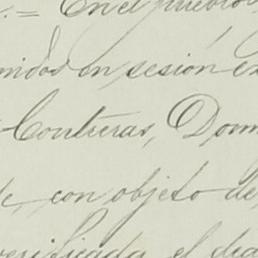 = En el pueblo
nidos en sesión ex
Contreras, Dom
con objeto de
verificada el día